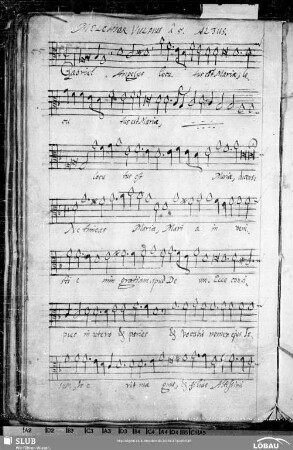 MELCHIOR VULPIUS à 5. ALTUS.
Gabriel Angelus locu tus est Mariæ, lo
cu tus est Mariæ,
locu tus est Mariæ, dicens
Ne timeas Maria, Mari a in veni
sti e nim gratiam apud De um. Ecce conci
pies in utero & paries & vocabis nomen ejus Ie
sum, hic e rit mag nus, & filius Altissimi
SLUB
Wir führen Wissen.
LÖBAU